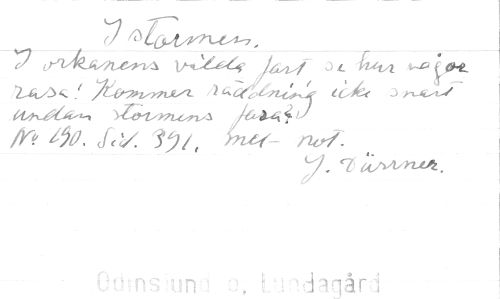 I stormen.
I orkanens vilda fart se hur vågor
rasa! Kommer räddning icke snart
undan stormens fara?
No 190. Sid. 391. med not.
J. Dürrner.
Odinslund o. Lundagård